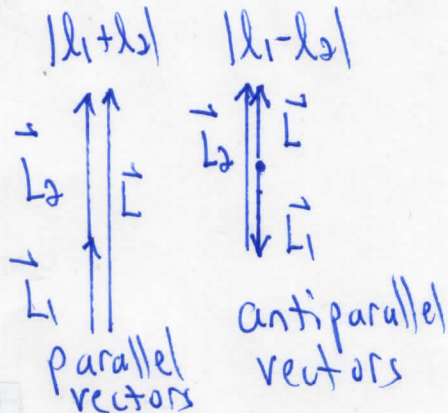 |l₁+l₂|
|l₁-l₂|
L⃗₂
L⃗
L⃗₁
parallel
vectors
L⃗₂
L⃗
L⃗₁
antiparallel
vectors